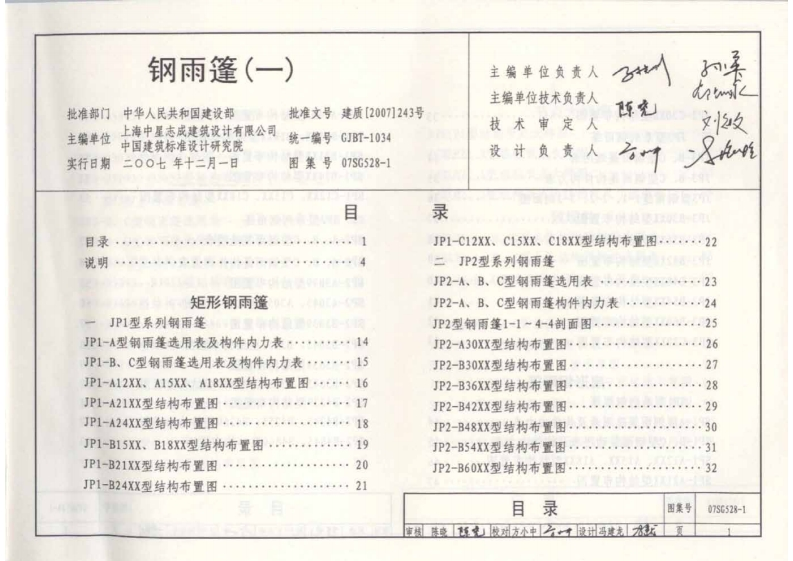 钢雨篷(一)
批准部门 中华人民共和国建设部 批准文号 建质[2007]243号
主编单位 上海中星志成建筑设计有限公司 中国建筑标准设计研究院 统一编号 GJBT-1034
实行日期 二〇〇七年十二月一日 图集号 07SG528-1
主编单位负责人
主编单位技术负责人
技术审定人 陈晓
设计负责人
目录
目录 1
说明 4
矩形钢雨篷
一 JP1型系列钢雨篷
JP1-A型钢雨篷选用表及构件内力表 14
JP1-B、C型钢雨篷选用表及构件内力表 15
JP1-A12XX、A15XX、A18XX型结构布置图 16
JP1-A21XX型结构布置图 17
JP1-A24XX型结构布置图 18
JP1-B15XX、B18XX型结构布置图 19
JP1-B21XX型结构布置图 20
JP1-B24XX型结构布置图 21
JP1-C12XX、C15XX、C18XX型结构布置图 22
二 JP2型系列钢雨篷
JP2-A、B、C型钢雨篷选用表 23
JP2-A、B、C型钢雨篷构件内力表 24
JP2型钢雨篷1-1~4-4剖面图 25
JP2-A30XX型结构布置图 26
JP2-B30XX型结构布置图 27
JP2-B36XX型结构布置图 28
JP2-B42XX型结构布置图 29
JP2-B48XX型结构布置图 30
JP2-B54XX型结构布置图 31
JP2-B60XX型结构布置图 32
目录 图集号 07SG528-1
审核 陈晓 陈晓 校对 方小中 设计 冯建龙 页 1